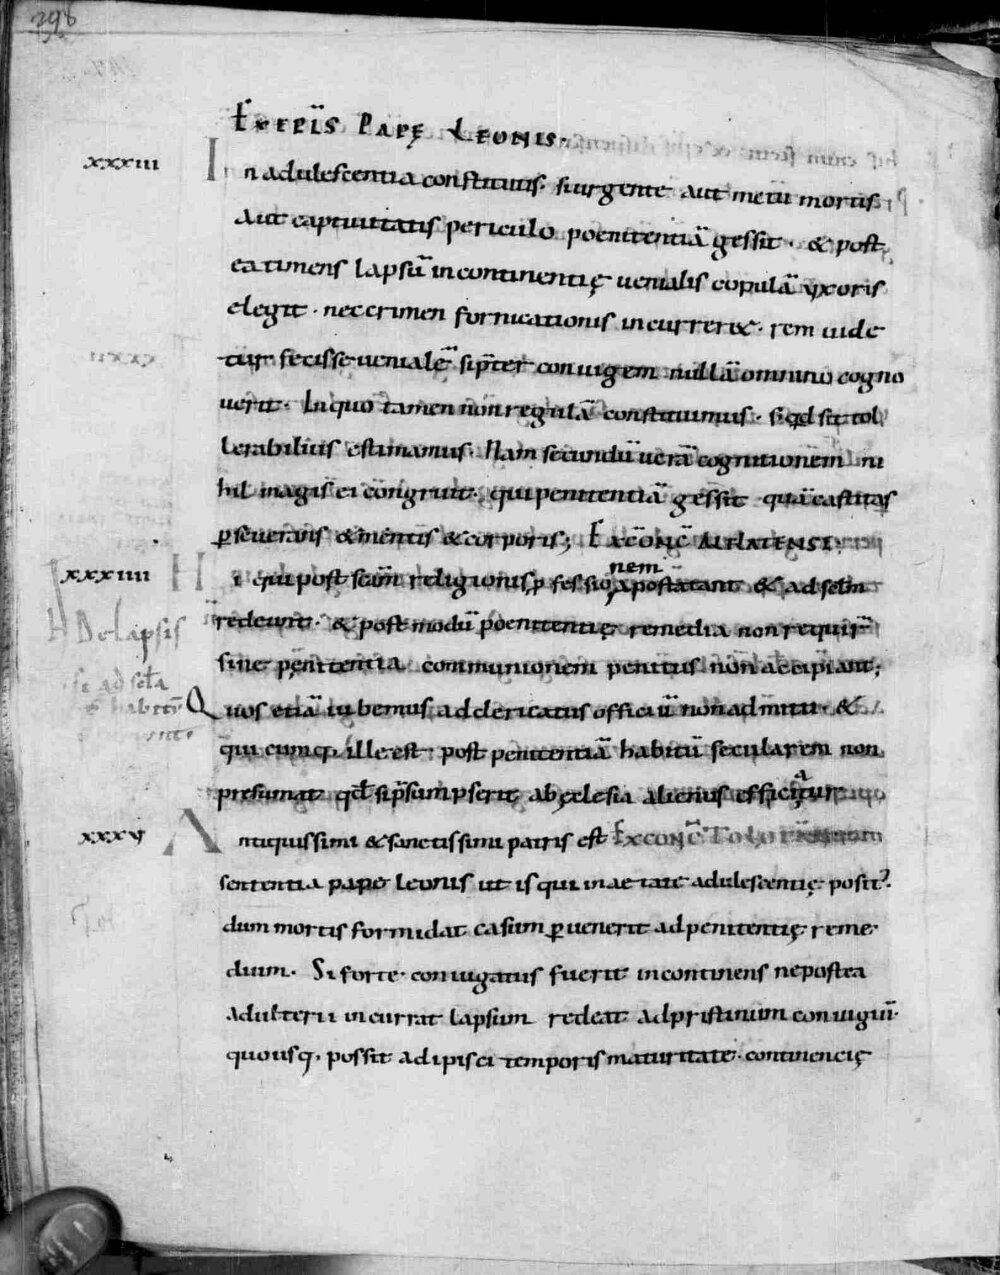 298
Ex epl̄is Papę Leonis.
xxxiii
In adulescentia constitutus. si urgente aut metū mortis
aut captiuitatis periculo poenitentiā gessit. & post
ea timens lapsū incontinentię uenialis copulā uxoris
elegit. nec crimen fornicationis incurreret. rem uide
tur fecisse uenialē si p̄ter coniugem nullā omnino cogno
uerit. In quo tamen non regulā constituimus. s; qd sit tol
lerabilius estimamus. Nam secundū uerā cognitionem ni
hil magis ei congruit. qui penitentiā gessit quā castitas
ꝑseuerans & mentis & corporis; Ex conc̄ Arelatensi.
xxxiiii
Hi qui post scām religionis ꝓfessionem apostatant & ad sclm̄
redeunt. & post modū poenitentię remedia non requir̄
De lapsis
sine pęnitentia communionem penitus non accipiant;
si ad scła
Quos etiā iubemus ad clericatus officiū non admitti. &
quicumq; ille est post penitentiā habitū secularem non
presumat qd̄ si p̄sumpserit ab ęclesia alienus efficiatur
xxxv
Antiquissimi & sanctissimi patris est Ex conc̄ Toletan
sententia pape Leonis ut is qui in aetate adulescentię posit?
dum mortis formidat casum ꝑuenerit ad penitentię reme
dium. Si forte coniugatus fuerit incontinens ne postea
adulterii incurrat lapsum redeat ad pristinum coniugiū.
quousq; possit adipisci temporis maturitate. continencię